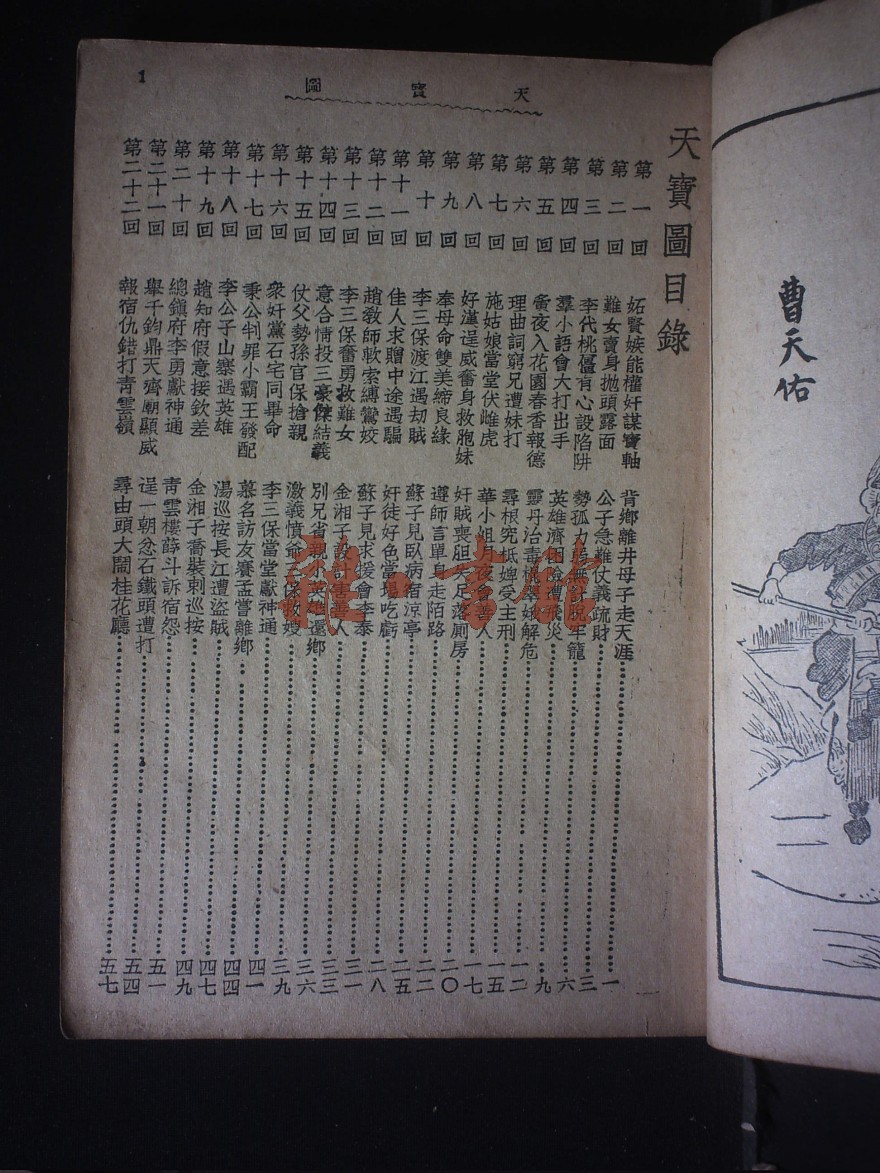 曹天佑
天寶圖
1
天寶圖目錄
第一回 妬賢嫉能權奸謀寶軸 背鄉離井母子走天涯 一
第二回 難女賣身拋頭露面 公子急難仗義疏財 三
第三回 李代桃僵有心設陷阱 勢孤力 無計脫牢籠 六
第四回 羣小語會大打出手 英雄濟困 遭飛災 九
第五回 黃夜入花園春香報德 靈丹治毒 娘解危 一二
第六回 理曲詞窮兄遭妹打 尋根究柢婢受主刑 一五
第七回 施姑娘當堂伏雌虎 華小姐月夜會善人 一七
第八回 好漢逞威奮身救胞妹 奸賊喪胆失足落厠房 二〇
第九回 奉母命雙美締良緣 遵師言單身走陌路 二二
第十回 李三保渡江遇劫賊 蘇子見臥病宿涼亭 二五
第十一回 佳人求贈中途遇騙 奸徒好色當場吃虧 二八
第十二回 趙教師軟索縛鸞姣 蘇子見求援會李泰 三一
第十三回 李三保奮勇救難女 金湘子設計害善人 三三
第十四回 意合情投三豪傑結義 別兄省親小英雄還鄉 三六
第十五回 仗父勢孫官保搶親 激義憤爺三保救嫂 三九
第十六回 衆奸黨石宅同畢命 李三保當堂獻神通 四一
第十七回 秉公判罪小霸王發配 慕名訪友賽孟嘗離鄉 四四
第十八回 李公子山寨遇英雄 湯巡按長江遭盜賊 四七
第十九回 趙知府假意接欽差 金湘子喬裝刺巡按 四九
第二十回 總鎮府李勇獻神通 靑雲樓薛斗訴宿怨 五一
第二十一回 舉千鈞鼎天齊廟顯威 逞一朝忿石鐵頭遭打 五四
第二十二回 報宿仇錯打靑雲嶺 尋由頭大鬧桂花廳 五七